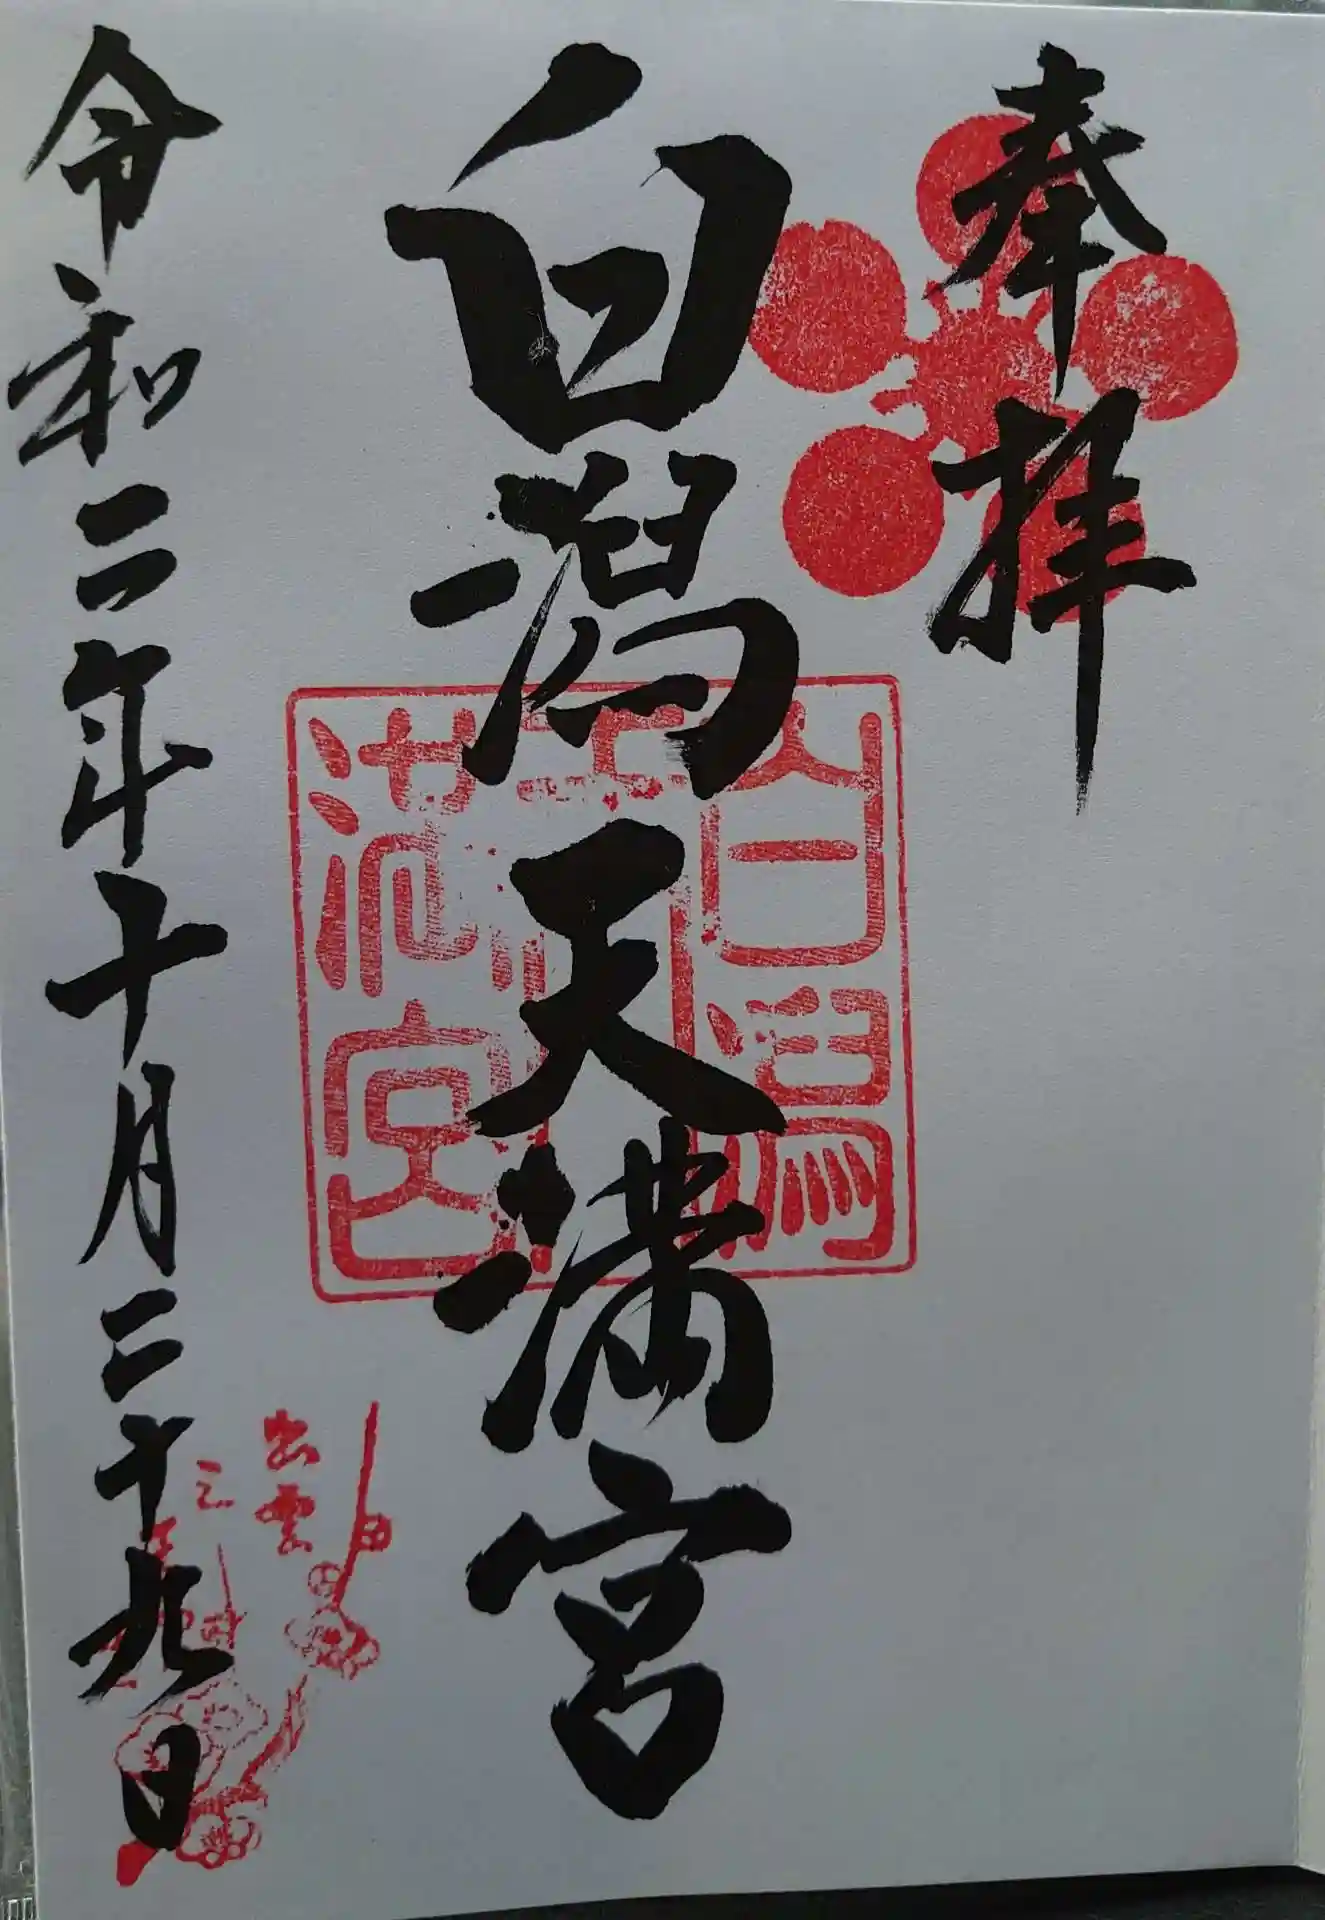 奉拝
白潟天満宮
白潟
天
満宮
令和二年十月二十九日
出雲